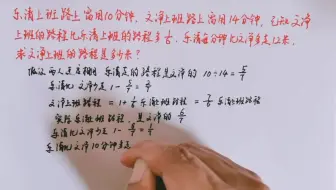 乐清上班路上需用10分钟,文净上班路上需用14分钟,已知文净
上班的路程比乐清上班的路程多1/6,乐清每分钟比文净多走12米,
求文净上班的路程是多少米?
假设两人速度相同 乐清走的路程是文净的 10÷14=5/7
乐清比文净少 1-5/7=2/7
文净上班路程 = 1+1/6 乐清上班路程 = 7/6 乐清上班路程
实际乐清上班路程,是文净的 6/7
乐清比文净少 1-6/7=1/7
乐清比文净10分钟多走